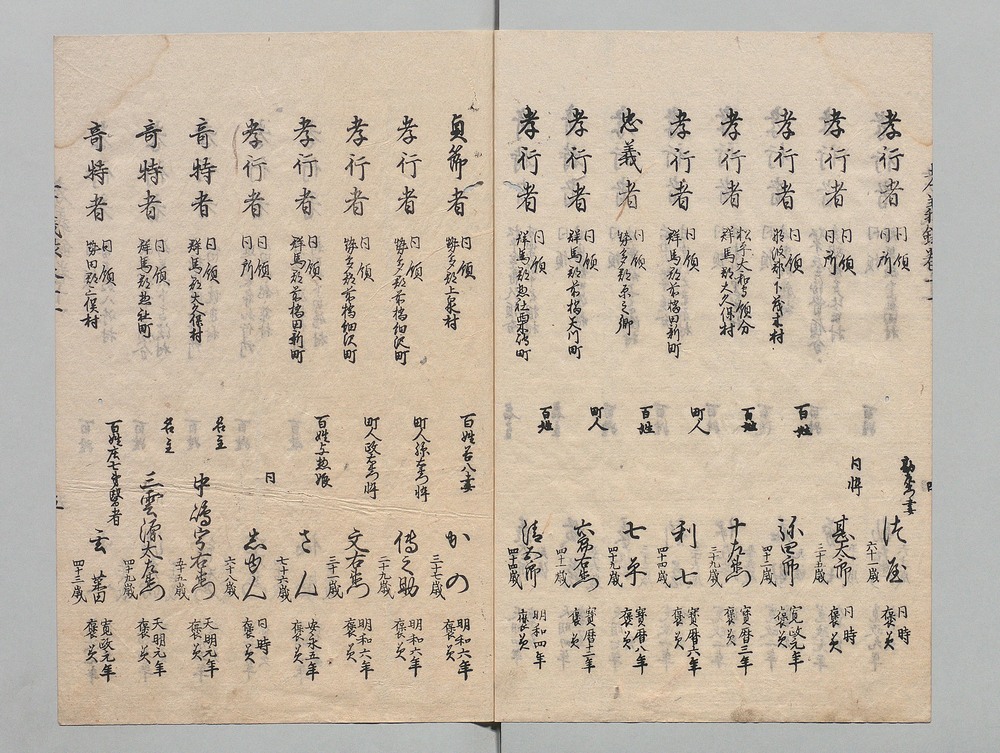 孝行者 同領 同所 妻 六十一歳 同時褒美
孝行者 同領 同所 同忰 甚太郎 三十五歳 同時褒美
孝行者 同領 那波郡下 村 百姓 弥四郎 四十三歳 寛政元年褒美
孝行者 松平大和守領分 群馬郡大久保村 百姓 十左衛門 三十九歳 宝暦三年褒美
孝行者 同領 群馬郡前橋田新町 町人 利七 四十四歳 寳暦六年褒美
忠義者 同領 勢多郡 之郷 百姓 七平 四十九歳 寳暦八年褒美
孝行者 同領 群馬郡前橋天川町 町人 右衛門 四十一歳 寳暦十二年褒美
孝行者 同領 群馬郡惣社 町 百姓 清五郎 四十四歳 明和四年褒美
貞節者 同領 勢多郡上泉村 百姓 八妻 かの 三十七歳 明和六年褒美
孝行者 同領 勢多郡前橋細沢町 町人弥左衛門忰 傳之助 二十九歳 明和六年褒美
孝行者 同領 勢多郡前橋細沢町 町人政右衛門忰 文右衛門 三十二歳 明和六年褒美
孝行者 同領 群馬郡前橋田新町 百姓与惣娘 さん 七十六歳 安永五年褒美
孝行者 同領 同所 同 六十八歳 同時褒美
奇特者 同領 群馬郡大久保村 名主 中嶋宇右衛門 五十五歳 天明元年褒美
奇特者 同領 群馬郡惣社町 名主 三雲源太左衛門 四十九歳 天明元年褒美
奇特者 同領 勢田郡三俣村 百姓庄七弟医者 玄 四十三歳 寛政元年褒美